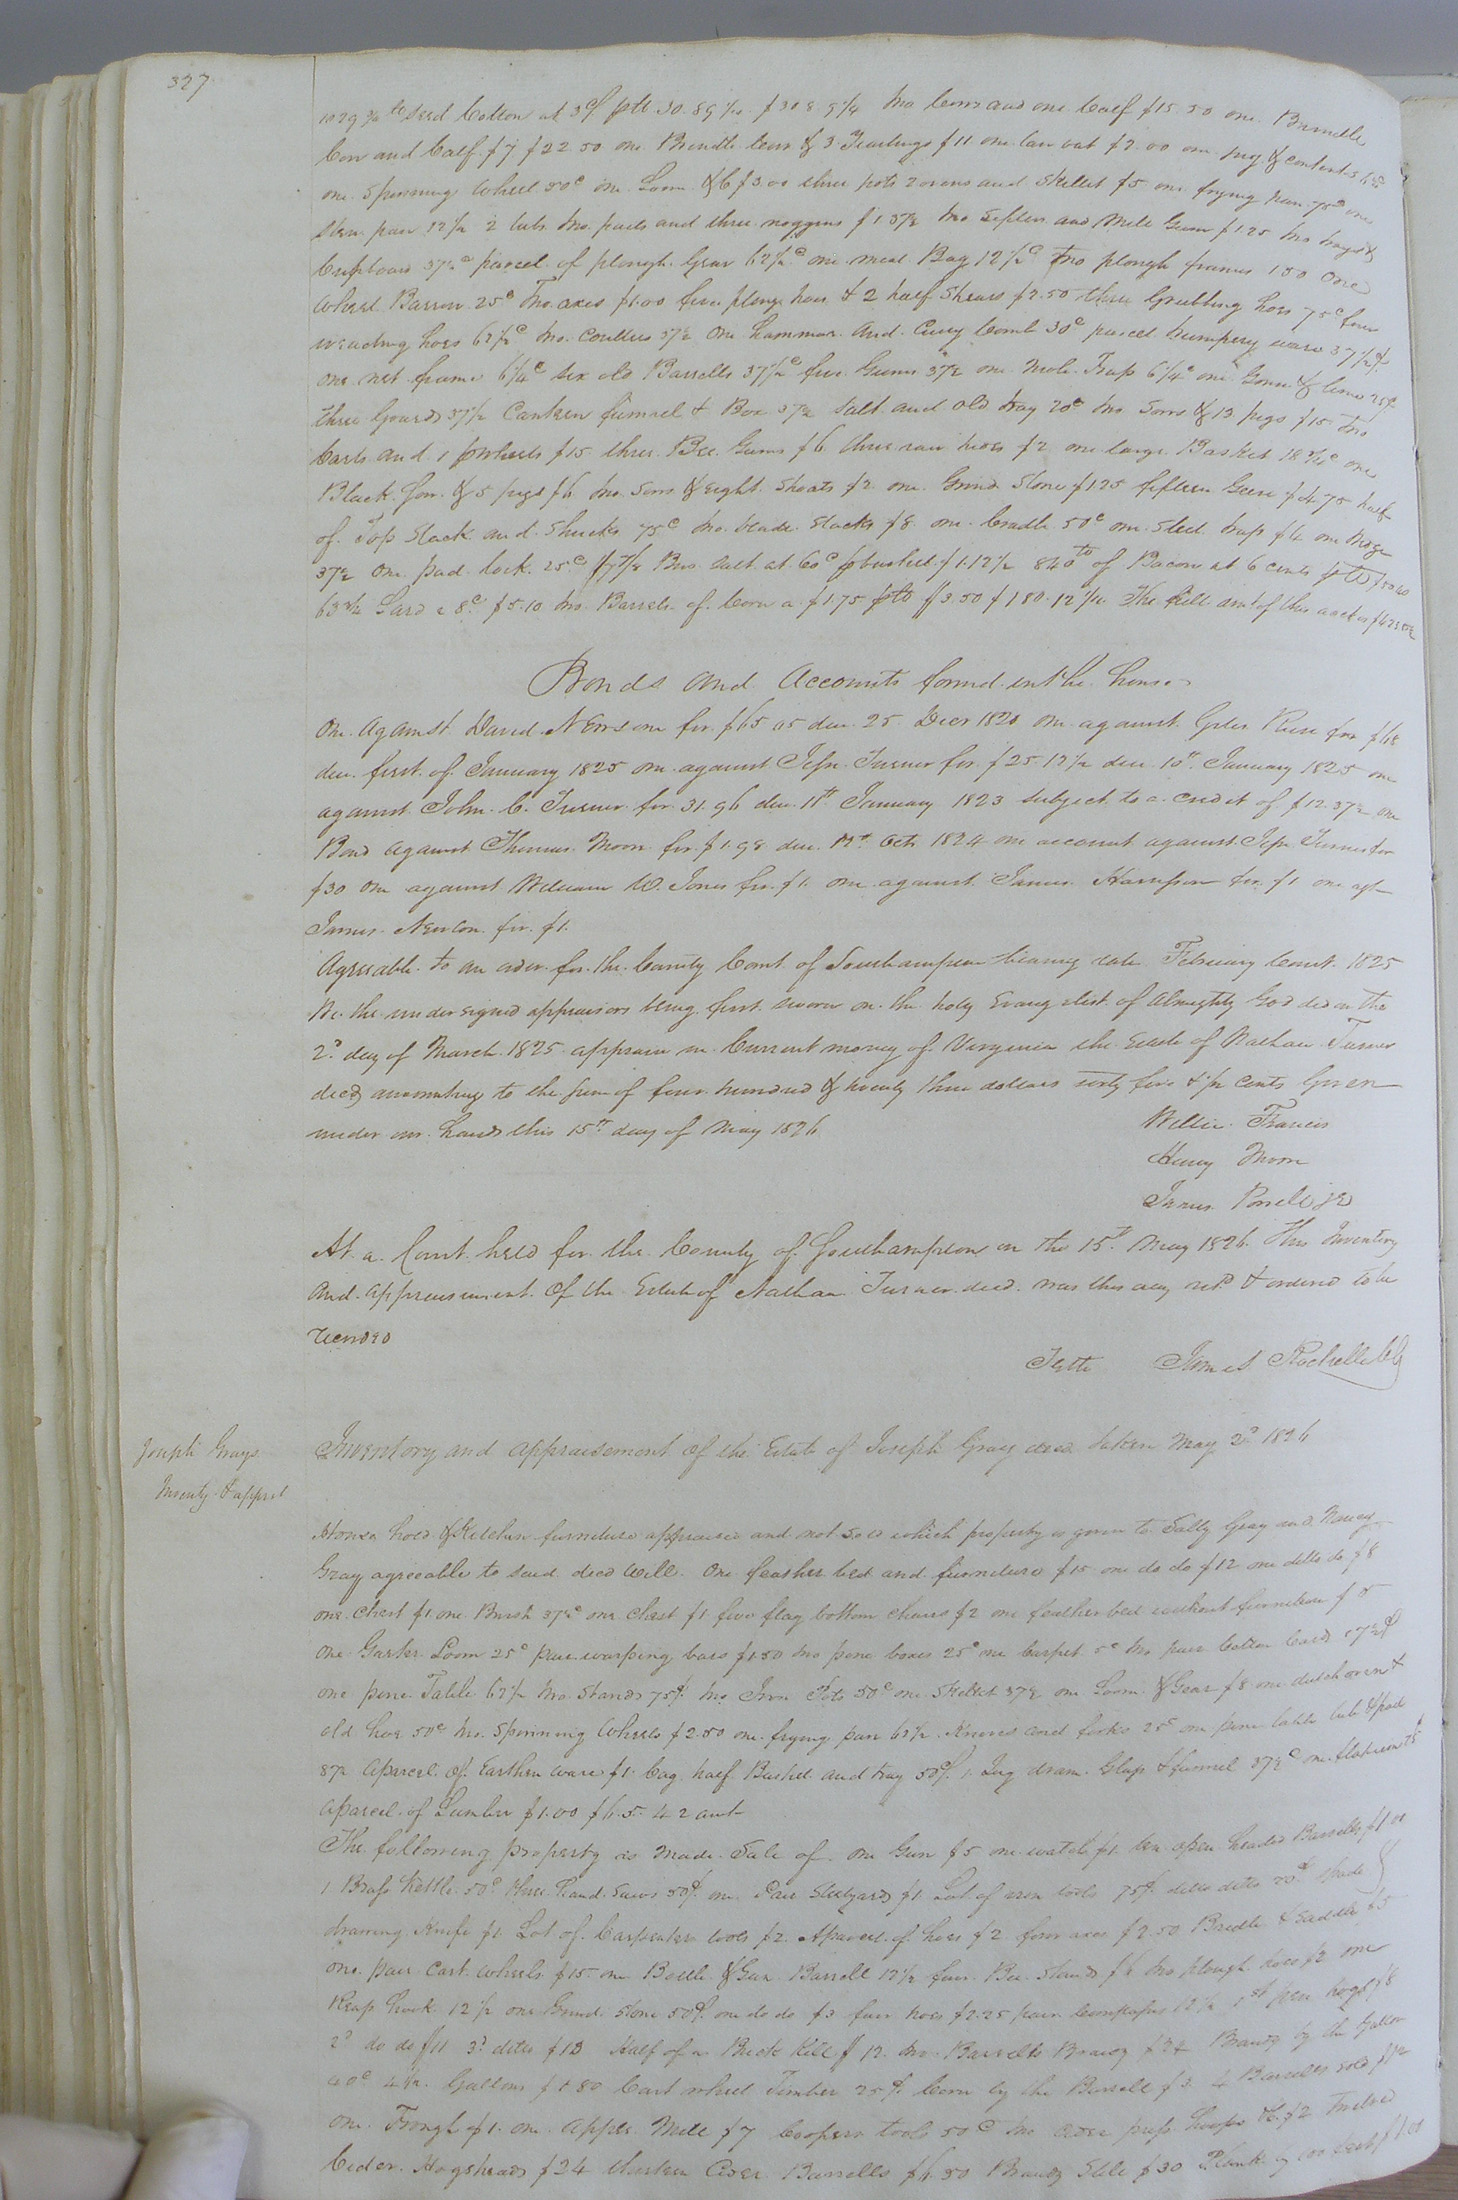 327
1029 3/4 lb seed Cotton at 3c plb 30.89 1/4 $30 89 1/4 two Cows and one Calf $15.50 one Brindle
Cow and Calf $7 $22 50 one Brindle Cow & 3 Yearlings $11 one vat $2.00 one jug & contents
one Spinning Wheel 50c one Loom &c $3.00 three pots 2 ovens and Skillet $5 one frying pan 75c one
Stew pan 12 1/2 2 tubs two pails and three noggins $1 37 1/2 two Sifters and Meal Gum $1.25 two trays &
Cupboard 37 1/2c parcel of plough Gear 62 1/2c one meal Bag 12 1/2c Two plough frames 100 One
Wheel Barrow 25c Two axes $1.00 five plough hoes & 2 half Shears $2.50 three Grubbing hoes 75c four
weeding hoes 62 1/2c two coulters 37 1/2 One hammer and Curry Comb 30c parcel trumpery ware 37 1/2c
one net frame 6 1/4c six old Barrells 37 1/2c five Gums 37 1/2 one Mole Trap 6 1/4c one 25c
three Gourds 37 1/2 Canteen funnel & Box 37 1/2 Salt and old tray 20c two Sows & 13 pigs $15 two
Carts and 1 pr wheels $15 three Bee Gums $6 three raw hides $2 one large Basket 18 3/4c one
Black Sow & 5 pigs $6 two Sows & eight Shoats $2 one Grind Stone $1.25 fifteen Geese $4.75 half
of Top Stack and Shucks 75c two blade Stacks $8 one Cradle 50c one Steel trap $4 one
37 1/2 One pad lock 25c 1 7/8 Bus. Salt at 60c p bushel $1.12 1/2 840 lb of Bacon at 6 cents p lb $50.40
63 3/4 Lard a 8c $5.10 two Barrels of Corn a $1.75 $3.50 $180.12 1/4 The full amt of this acct is
Bonds and Accounts found in the house
One Against David Newsom for $65 05 due 25 Decr 182 one against Giles Reese for $68
due first of January 1825 one against Jesse Turner for $25 12 1/2 due 10th January 1825 one
against John C. Turner for 31.96 due 11th January 1823 subject to a credit of $12.37 1/2 one
Bond against Thomas Moore for $1.98 due Octr 1824 one account against Jesse Turner for
$30 one against William W. Jones for $1 one against James Harrison for $1 one agt
James Newsom for $1
Agreeable to an order for the County Court of Southampton bearing date February Court 1825
We the undersigned appraisors being first sworn on the holy Evangelist of Almighty God did on the
2d day of March 1825 appraise in Current money of Virginia the Estate of Nathan Turner
decd amounting to the Sum of four hundred & twenty three dollars sixty five & 1/2 cents Given
under our hands this 15th day of May 1826
Willie Francis
Henry Moore
James Powell Jr
At a Court held for the County of Southampton on the 15th May 1826 This Inventory
and Appraisement of the Estate of Nathan Turner decd was this day retd & ordered to be
recorded
Teste James Rochelle CC
Joseph Grays
Inventy & apprt
Inventory and appraisement of the Estate of Joseph Gray decd taken May 2d 1826
House hold & Kitchen furniture appraised and not Sold which property is given to Sally Gray and Nancy
Gray agreeable to said decd Will. One feather bed and furniture $15 one do do $12 one ditto do $8
one Chest $1 one Brush 37 1/2c one Chest $1 five flag bottom chairs $2 one feather bed without furniture $5
One Loom 25c pair warping bars $1.50 two pine boxes 25c one Carpet 5c two pair Cotton Cards
one pine Table 62 1/2 two Stands 75c two Iron Pots 50c one Skillet 37 1/2 one Loom & Gear $8 one dutch oven &
old hoe 50c two Spinning Wheels $2.50 one frying pan 62 1/2 Knives and forks 25c one pine table tub & pail
87 1/2 Aparcel of Earthen ware $1 bag half Bushel and tray 50c 1 Jug dram Glass & funnel 37 1/2c one
aparcel of Lumber $1.00 $65.42 amt
The following property is made Sale of one Gun $5 one watch $1 ten open headed Barrells $1 00
1 Brass Kettle 50c three hand Saws 50c one Pair Steelyards $1 Lot of iron tools 75c ditto ditto 20c Spade
drawing Knife $1 Lot of Carpenters tools $2 Aparcel of hoes $2 four axes $2.50 Bridle & saddle $5
one pair Cart Wheels $15 one Bottle & Gun Barrell 12 1/2 four Bee Stands $6 two plough hoes $2 one
Reap hook 12 1/2 one Grind Stone 50c one do do $3 four hoes $2.25 pair Compasses 12 1/2 1st pen hogs $8
2d do do $11 3d ditto $13 Half of a Brick Kiln $12 two Barrells Brandy $24 Brandy by the Gallon
40c 4 1/2 Gallons $1 80 Cart wheel Timber 25c Corn by the Barrell $3 4 Barrells sold $12
One Trough $1 one apple Mill $7 Coopers tools 50c two Cider press hoops &c $2 Twelve
Cider Hogsheads $24 thirteen Cider Barrells $6.50 Brandy Still $30 Plank by 100 feet $1 00